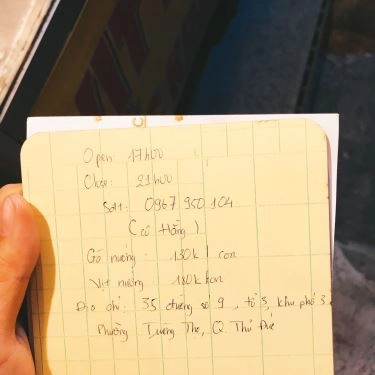 Open: 17h00
Close: 21h00
Sđt: 0967 950 104
(cô Hồng)
Gà nướng: 130k / con
Vịt nướng: 180k/con
Địa chỉ: 35 đường số 9, tổ 3, khu phố 3
Phường Trường Thọ, Q. Thủ Đức